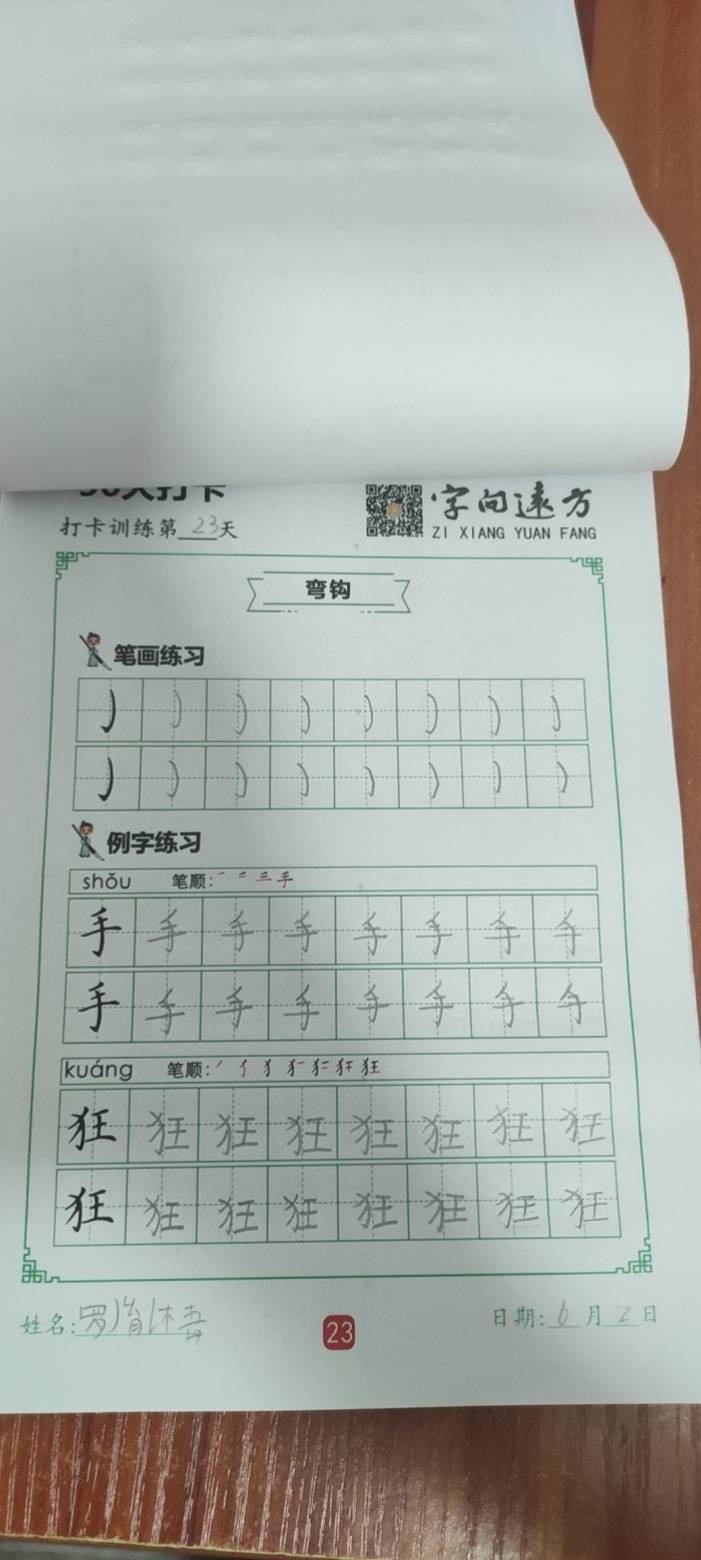 打卡训练第23天
字向远方
ZI XIANG YUAN FANG
弯钩
笔画练习
例字练习
shǒu 笔顺: 手
手 手 手 手 手 手 手 手
手 手 手 手 手 手 手 手
kuáng 笔顺: 狂
狂 狂 狂 狂 狂 狂 狂 狂
狂 狂 狂 狂 狂 狂 狂 狂
姓名: 罗
23
日期: 6月2日